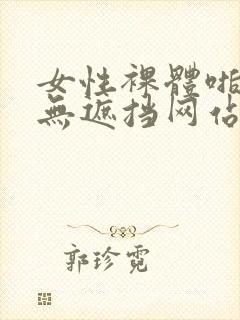 女性裸體啪
無遮挡网佔
郭珍霓